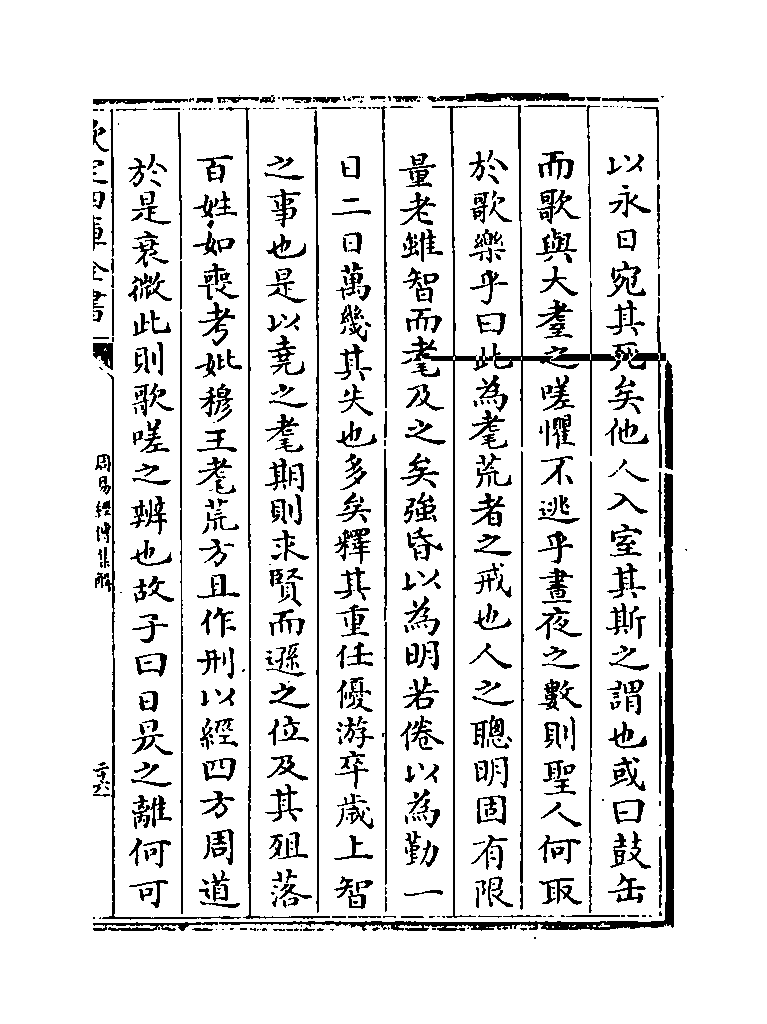 以永日宛其死矣他人入室其斯之謂也或曰鼓缶
而歌與大耋之嗟懼不逃乎晝夜之數則聖人何取
於歌樂乎曰此為耄荒者之戒也人之聰明固有限
量老雖智而耄及之矣強昏以為明若倦以為勤一
日二日萬幾其失也多矣釋其重任優游卒歲上智
之事也是以堯之耄期則求賢而遜之位及其殂落
百姓如喪考妣穆王耄荒方且作刑以經四方周道
於是衰微此則歌嗟之辨也故子曰日昃之離何可
欽定四庫全書
周易經傳集解